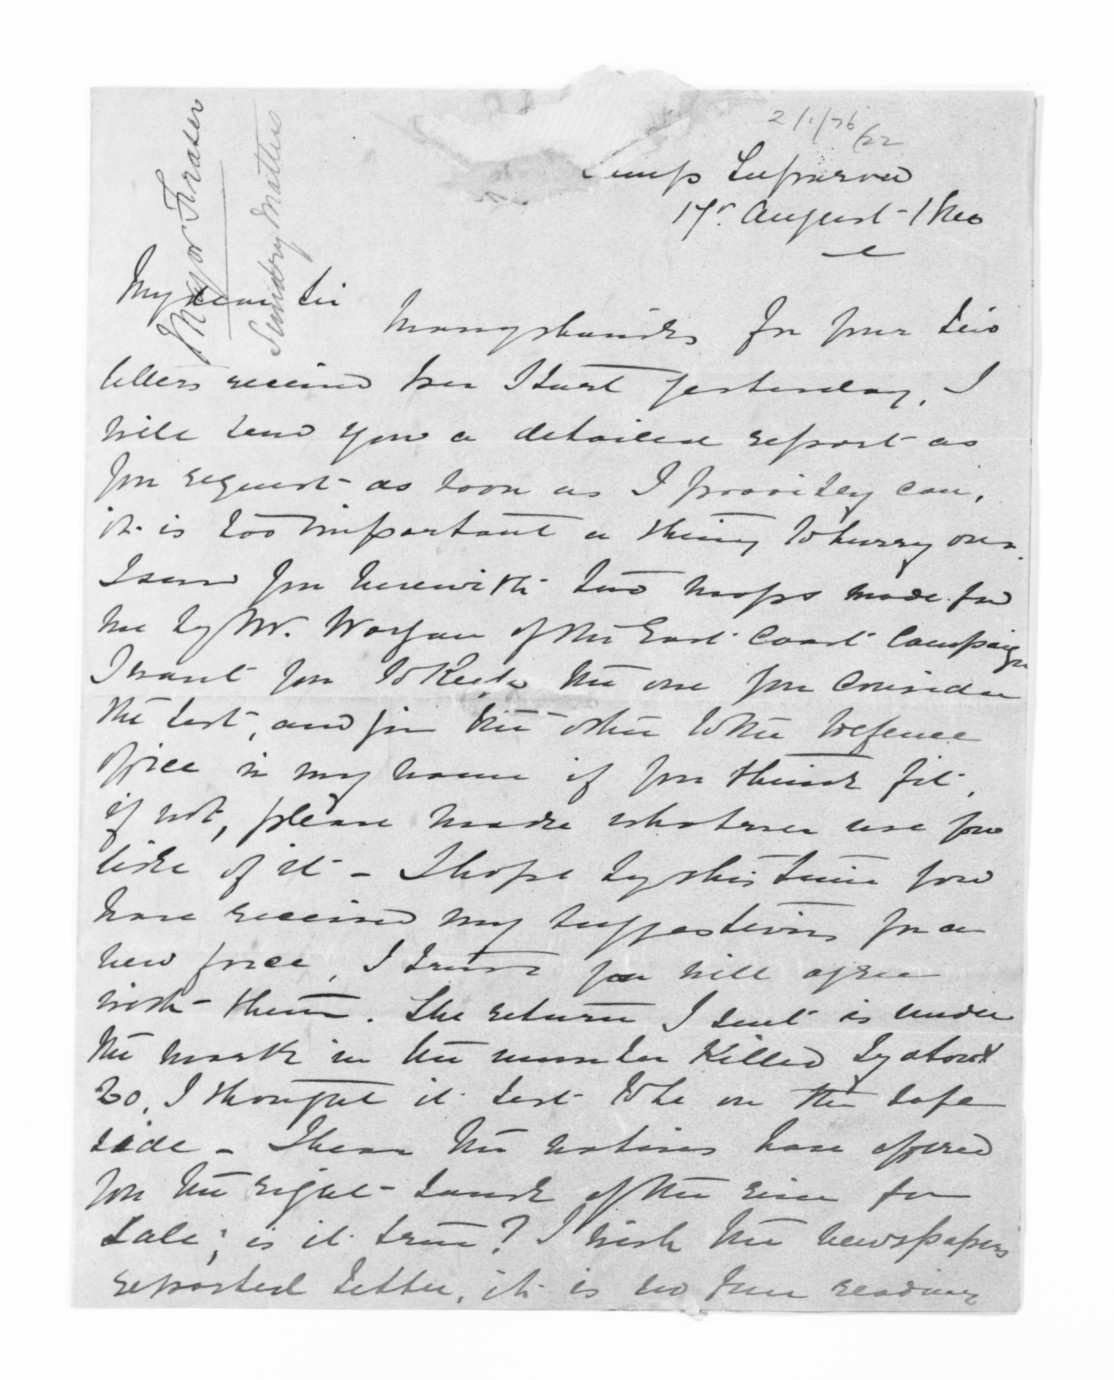 Major Fraser
Sundry Matters
Camp
17th August 1866
My dear Sir
Many thanks for your two
letters received here I last yesterday, I
will send you a detailed report as
you request as soon as I possibly can,
it is too important a thing to hurry over.
I send you herewith two maps made for
me by Mr. Worgan of the East Coast Campaign
I want you to keep the one you consider
the best, and give the other to the Defence
Office in my name if you think fit,
if not, please make whatever use you
like of it - I hope by this time you
have received my suggestions for a
new force, I trust you will agree
with them. The return I sent is under
the mark in the number killed by about
20, I thought it best to be on the safe
side - I hear the natives have offered
you the right bank of the river for
sale; is it true? I wish the newspapers
reported better, it is no fun reading